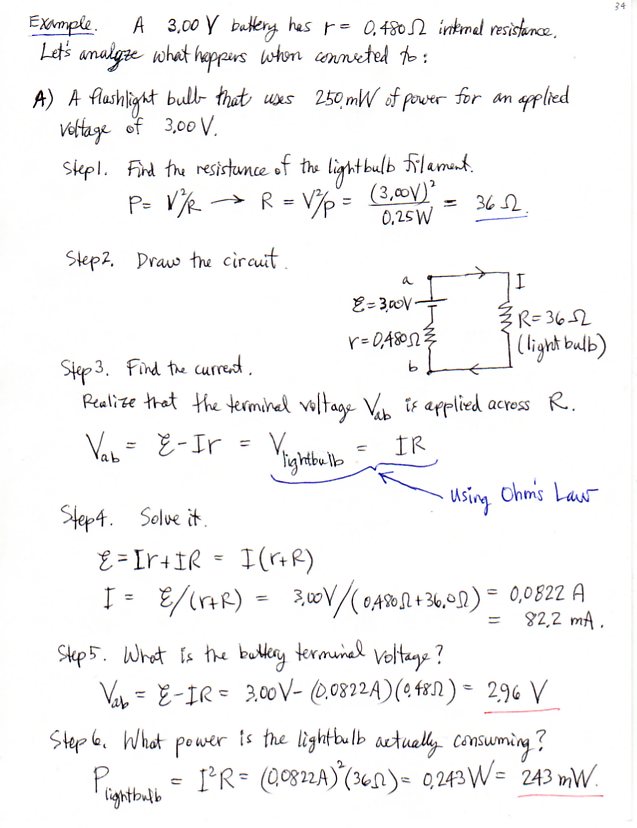 34
Example. A 3.00 V battery has r = 0.480Ω internal resistance.
Let's analyze what happens when connected to:
A) A flashlight bulb that uses 250 mW of power for an applied
voltage of 3.00 V.
Step1. Find the resistance of the lightbulb filament.
P = V²/R → R = V²/P = (3.00V)²/0.25W = 36 Ω.
Step2. Draw the circuit.
a
I
ℰ = 3.00V
r = 0.480Ω
R = 36 Ω
(light bulb)
b
Step3. Find the current.
Realize that the terminal voltage Vab is applied across R.
Vab = ℰ - Ir = Vlightbulb = IR
Using Ohm's Law
Step4. Solve it.
ℰ = Ir + IR = I(r+R)
I = ℰ/(r+R) = 3.00V/(0.480Ω+36.0Ω) = 0.0822 A
= 82.2 mA.
Step5. What is the battery terminal voltage?
Vab = ℰ - IR = 3.00V - (0.0822A)(0.48Ω) = 2.96 V
Step 6. What power is the lightbulb actually consuming?
Plightbulb = I²R = (0.0822A)²(36Ω) = 0.243 W = 243 mW.